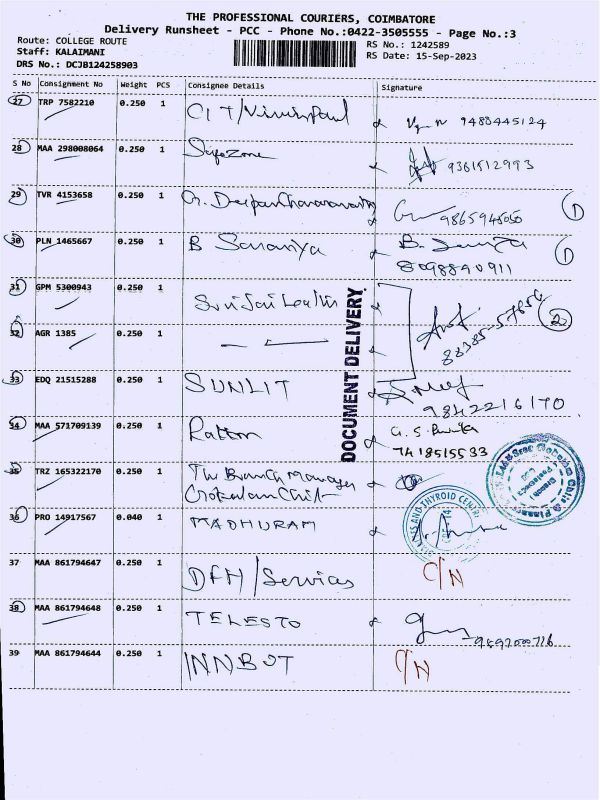 THE PROFESSIONAL COURIERS, COIMBATORE
Delivery Runsheet - PCC - Phone No.:0422-3505555 - Page No.:3
Route: COLLEGE ROUTE
RS No.: 1242589
Staff: KALAIMANI
RS Date: 15-Sep-2023
DRS No.: DCJB124258903
S No Consignment No Weight PCS Consignee Details Signature
27 TRP 7582210 0.250 1 CIT/
9488445124
28 MAA 298008064 0.250 1 Safezone
9361512993
29 TVR 4153658 0.250 1 1
30 PLN 1465667 0.250 1 B Saraniya B. 1
8098840911
31 GPM 5300943 0.250 1
2
32 AGR 1385 0.250 1
DOCUMENT DELIVERY
33 EDQ 21515288 0.250 1 SUNLIT
9842216170
34 MAA 571709139 0.250 1 G. S.
35 TRZ 165322170 0.250 1 The Branch Manager
Gokulam Chit
36 PRO 14917567 0.040 1 MADHURAM
AND THYROID CENTRE
37 MAA 861794647 0.250 1 DFM/Services C/N
38 MAA 861794648 0.250 1 TELESTO
39 MAA 861794644 0.250 1 INNBOT C/N